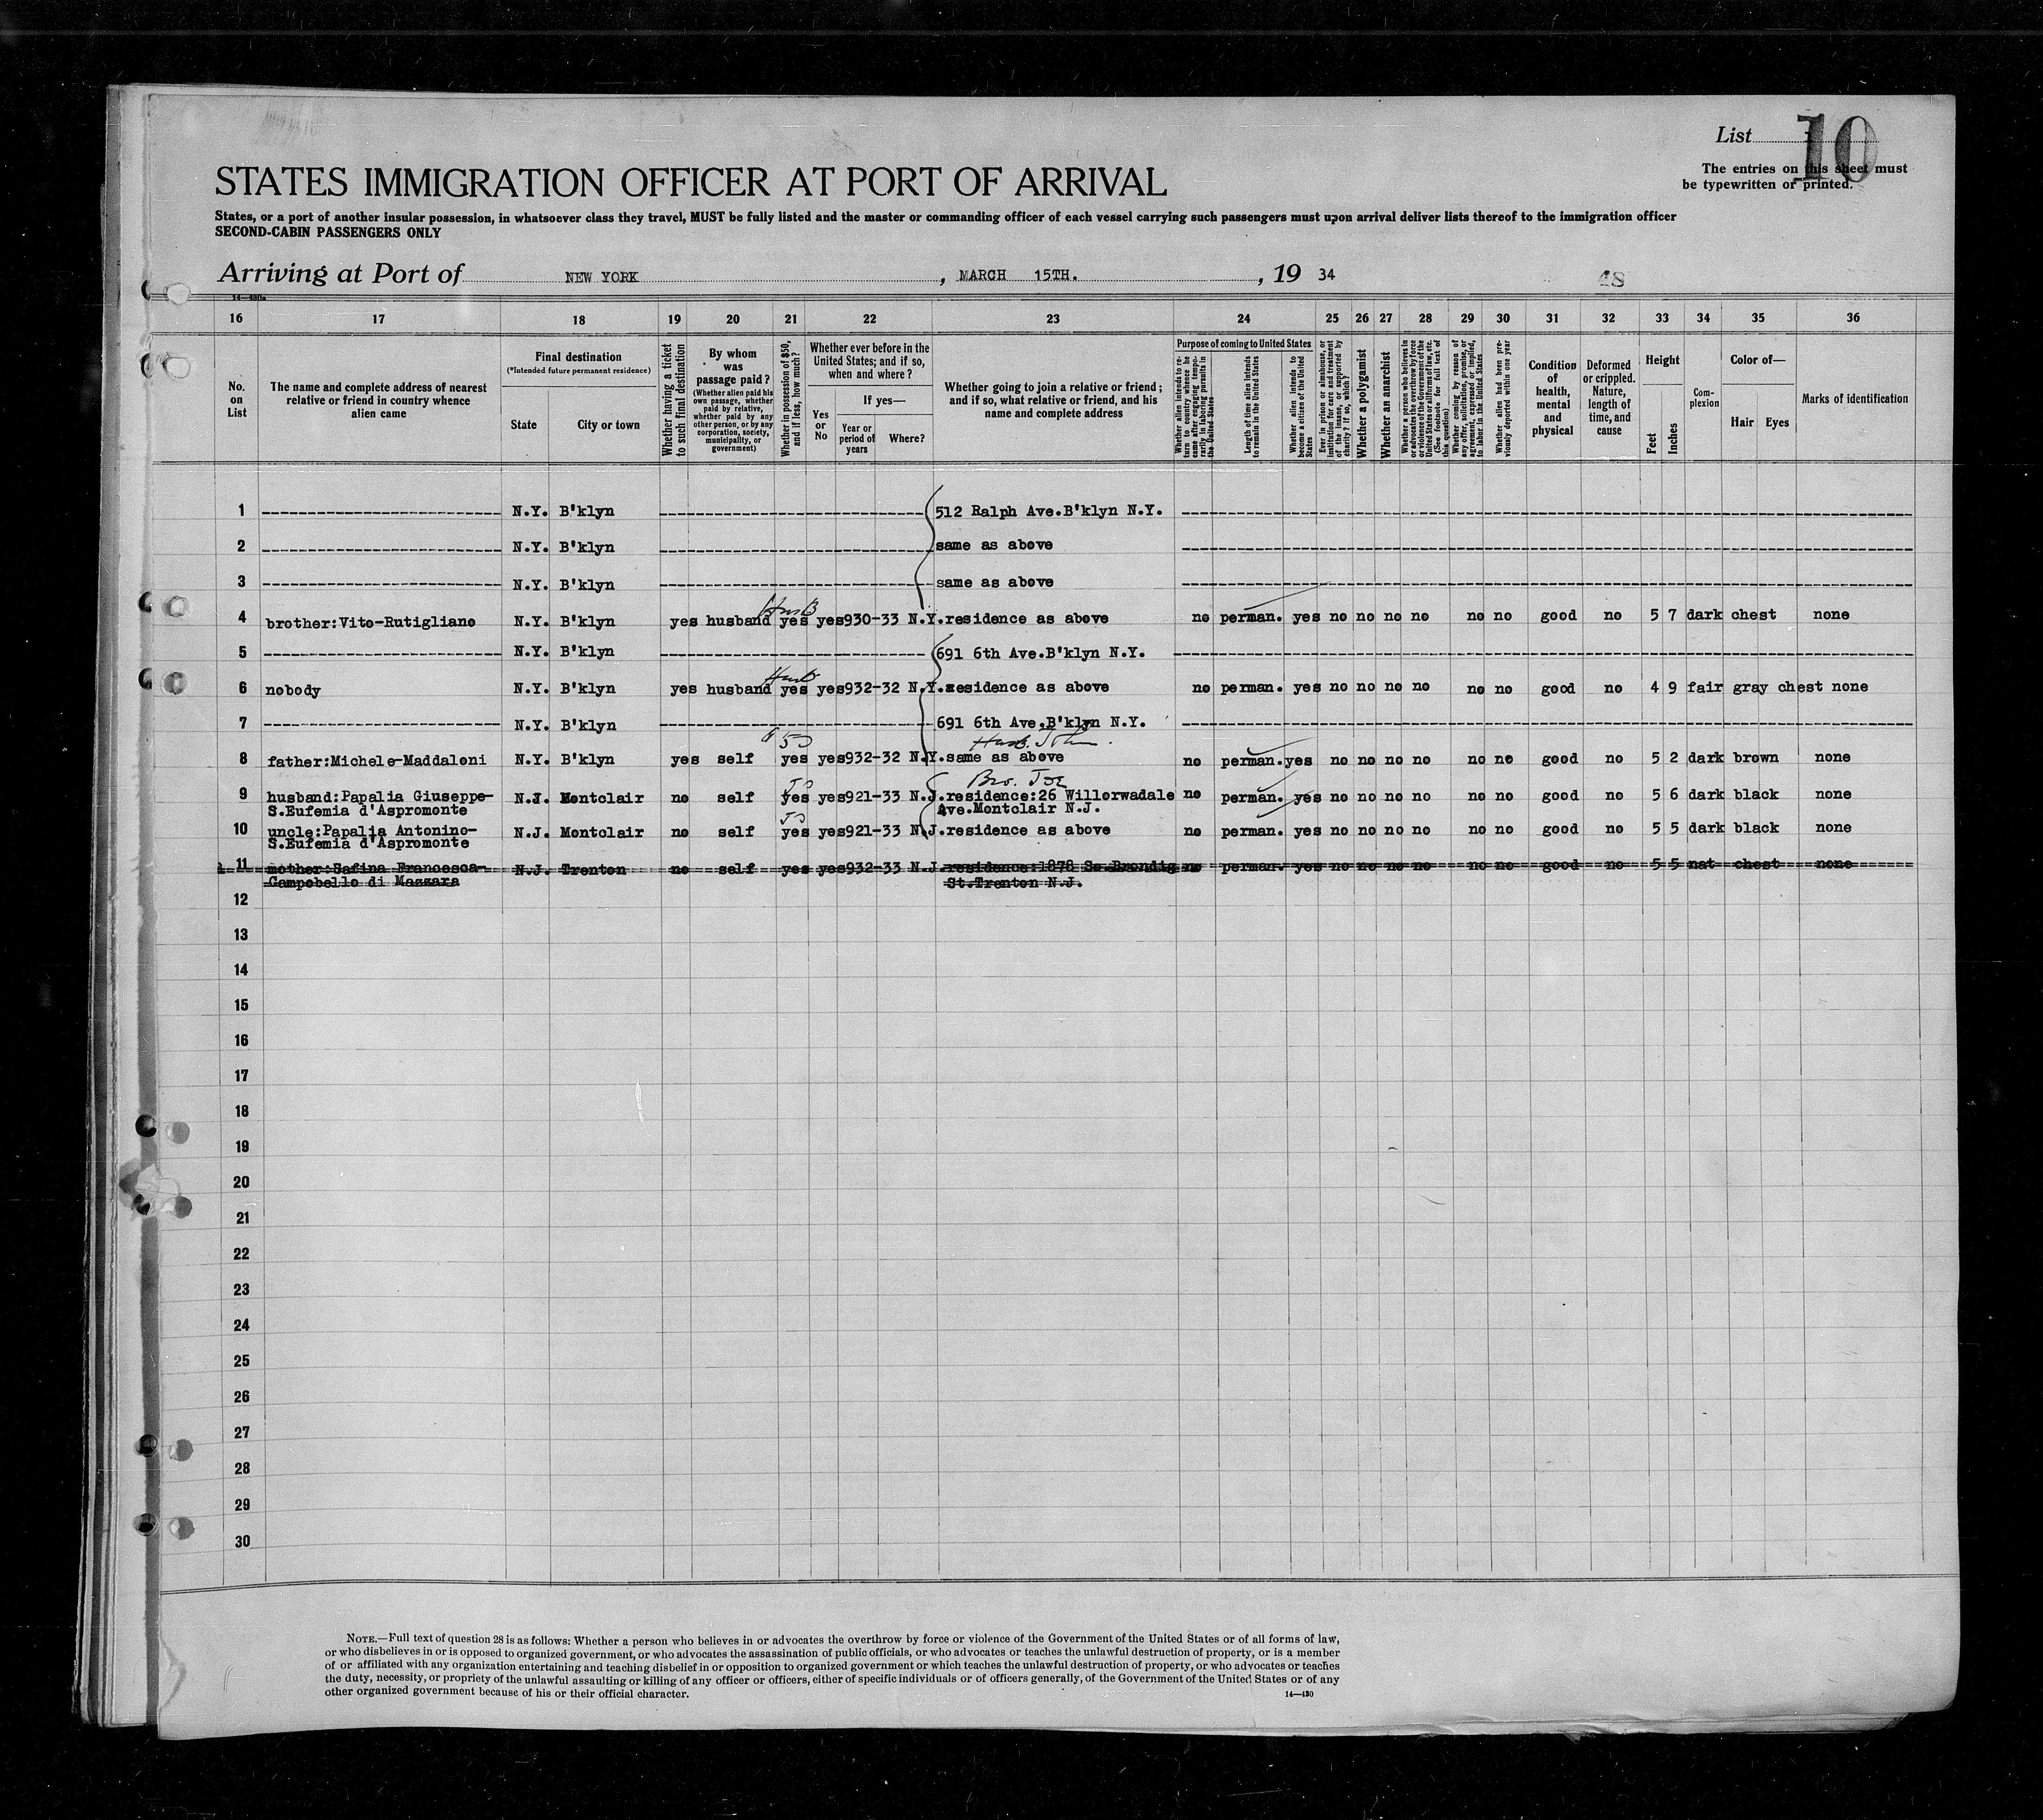 List 10
The entries on this sheet must
be typewritten or printed.
STATES IMMIGRATION OFFICER AT PORT OF ARRIVAL
States, or a port of another insular possession, in whatsoever class they travel, MUST be fully listed and the master or commanding officer of each vessel carrying such passengers must upon arrival deliver lists thereof to the immigration officer
SECOND-CABIN PASSENGERS ONLY
Arriving at Port of NEW YORK, MARCH 15TH., 19 34
48
14—430a
16 17 18 19 20 21 22 23 24 25 26 27 28 29 30 31 32 33 34 35 36
No. on List
The name and complete address of nearest relative or friend in country whence alien came
Final destination
(*Intended future permanent residence)
State
City or town
Whether having a ticket to such final destination
By whom was passage paid?
(Whether alien paid his own passage, whether paid by relative, whether paid by any other person, or by any corporation, society, municipality, or government)
Whether in possession of $50, and if less, how much?
Whether ever before in the United States; and if so, when and where?
Yes or No
If yes—
Year or period of years
Where?
Whether going to join a relative or friend; and if so, what relative or friend, and his name and complete address
Purpose of coming to United States
Whether alien intends to return to country whence he came after engaging temporarily in laboring pursuits in the United States
Length of time alien intends to remain in the United States
Whether alien intends to become a citizen of the United States
Ever in prison or almshouse, or institution for care and treatment of the insane, or supported by charity? If so, which?
Whether a polygamist
Whether an anarchist
Whether a person who believes in or advocates the overthrow by force or violence of the Government of the United States or all forms of law, etc. (See footnote for full text of this question)
Whether coming by reason of any offer, solicitation, promise, or agreement, expressed or implied, to labor in the United States
Whether alien had been previously deported within one year
Condition of health, mental and physical
Deformed or crippled. Nature, length of time, and cause
Height
Feet
Inches
Complexion
Color of—
Hair Eyes
Marks of identification
1 N.Y. B'klyn 512 Ralph Ave.B'klyn N.Y.
2 N.Y. B'klyn same as above
3 N.Y. B'klyn same as above
Husb
4 brother:Vito-Rutigliano N.Y. B'klyn yes husband yes yes930-33 N.Y.residence as above no perman. yes no no no no no no good no 5 7 dark chest none
5 N.Y. B'klyn 691 6th Ave.B'klyn N.Y.
Husb
6 nobody N.Y. B'klyn yes husband yes yes932-32 N.Y.residence as above no perman. yes no no no no no no good no 4 9 fair gray chest none
7 N.Y. B'klyn 691 6th Ave.B'klyn N.Y.
50 Husb. John
8 father:Michele-Maddaloni N.Y. B'klyn yes self yes yes932-32 N.Y.same as above no perman.yes no no no no no no good no 5 2 dark brown none
50 Bro. Joe
9 husband:Papalia Giuseppe- N.J. Montclair no self yes yes921-33 N.J.residence:26 Willorwadale no perman. yes no no no no no no good no 5 6 dark black none
S.Eufemia d'Aspromonte Ave.Montclair N.J.
50
10 uncle:Papalia Antonino- N.J. Montclair no self yes yes921-33 N.J.residence as above no perman. yes no no no no no no good no 5 5 dark black none
S.Eufemia d'Aspromonte
11 mother:Safina Francesca- N.J. Trenton no self yes yes932-33 N.J.residence:1878 So.Brondig no perman. yes no no no no no no good no 5 5 nat chest none
Campobello di Mazzara St.Trenton N.J.
12
13
14
15
16
17
18
19
20
21
22
23
24
25
26
27
28
29
30
NOTE.—Full text of question 28 is as follows: Whether a person who believes in or advocates the overthrow by force or violence of the Government of the United States or of all forms of law,
or who disbelieves in or is opposed to organized government, or who advocates the assassination of public officials, or who advocates or teaches the unlawful destruction of property, or is a member
of or affiliated with any organization entertaining and teaching disbelief in or opposition to organized government or which teaches the unlawful destruction of property, or who advocates or teaches
the duty, necessity, or propriety of the unlawful assaulting or killing of any officer or officers, either of specific individuals or of officers generally, of the Government of the United States or of any
other organized government because of his or their official character.
14—430